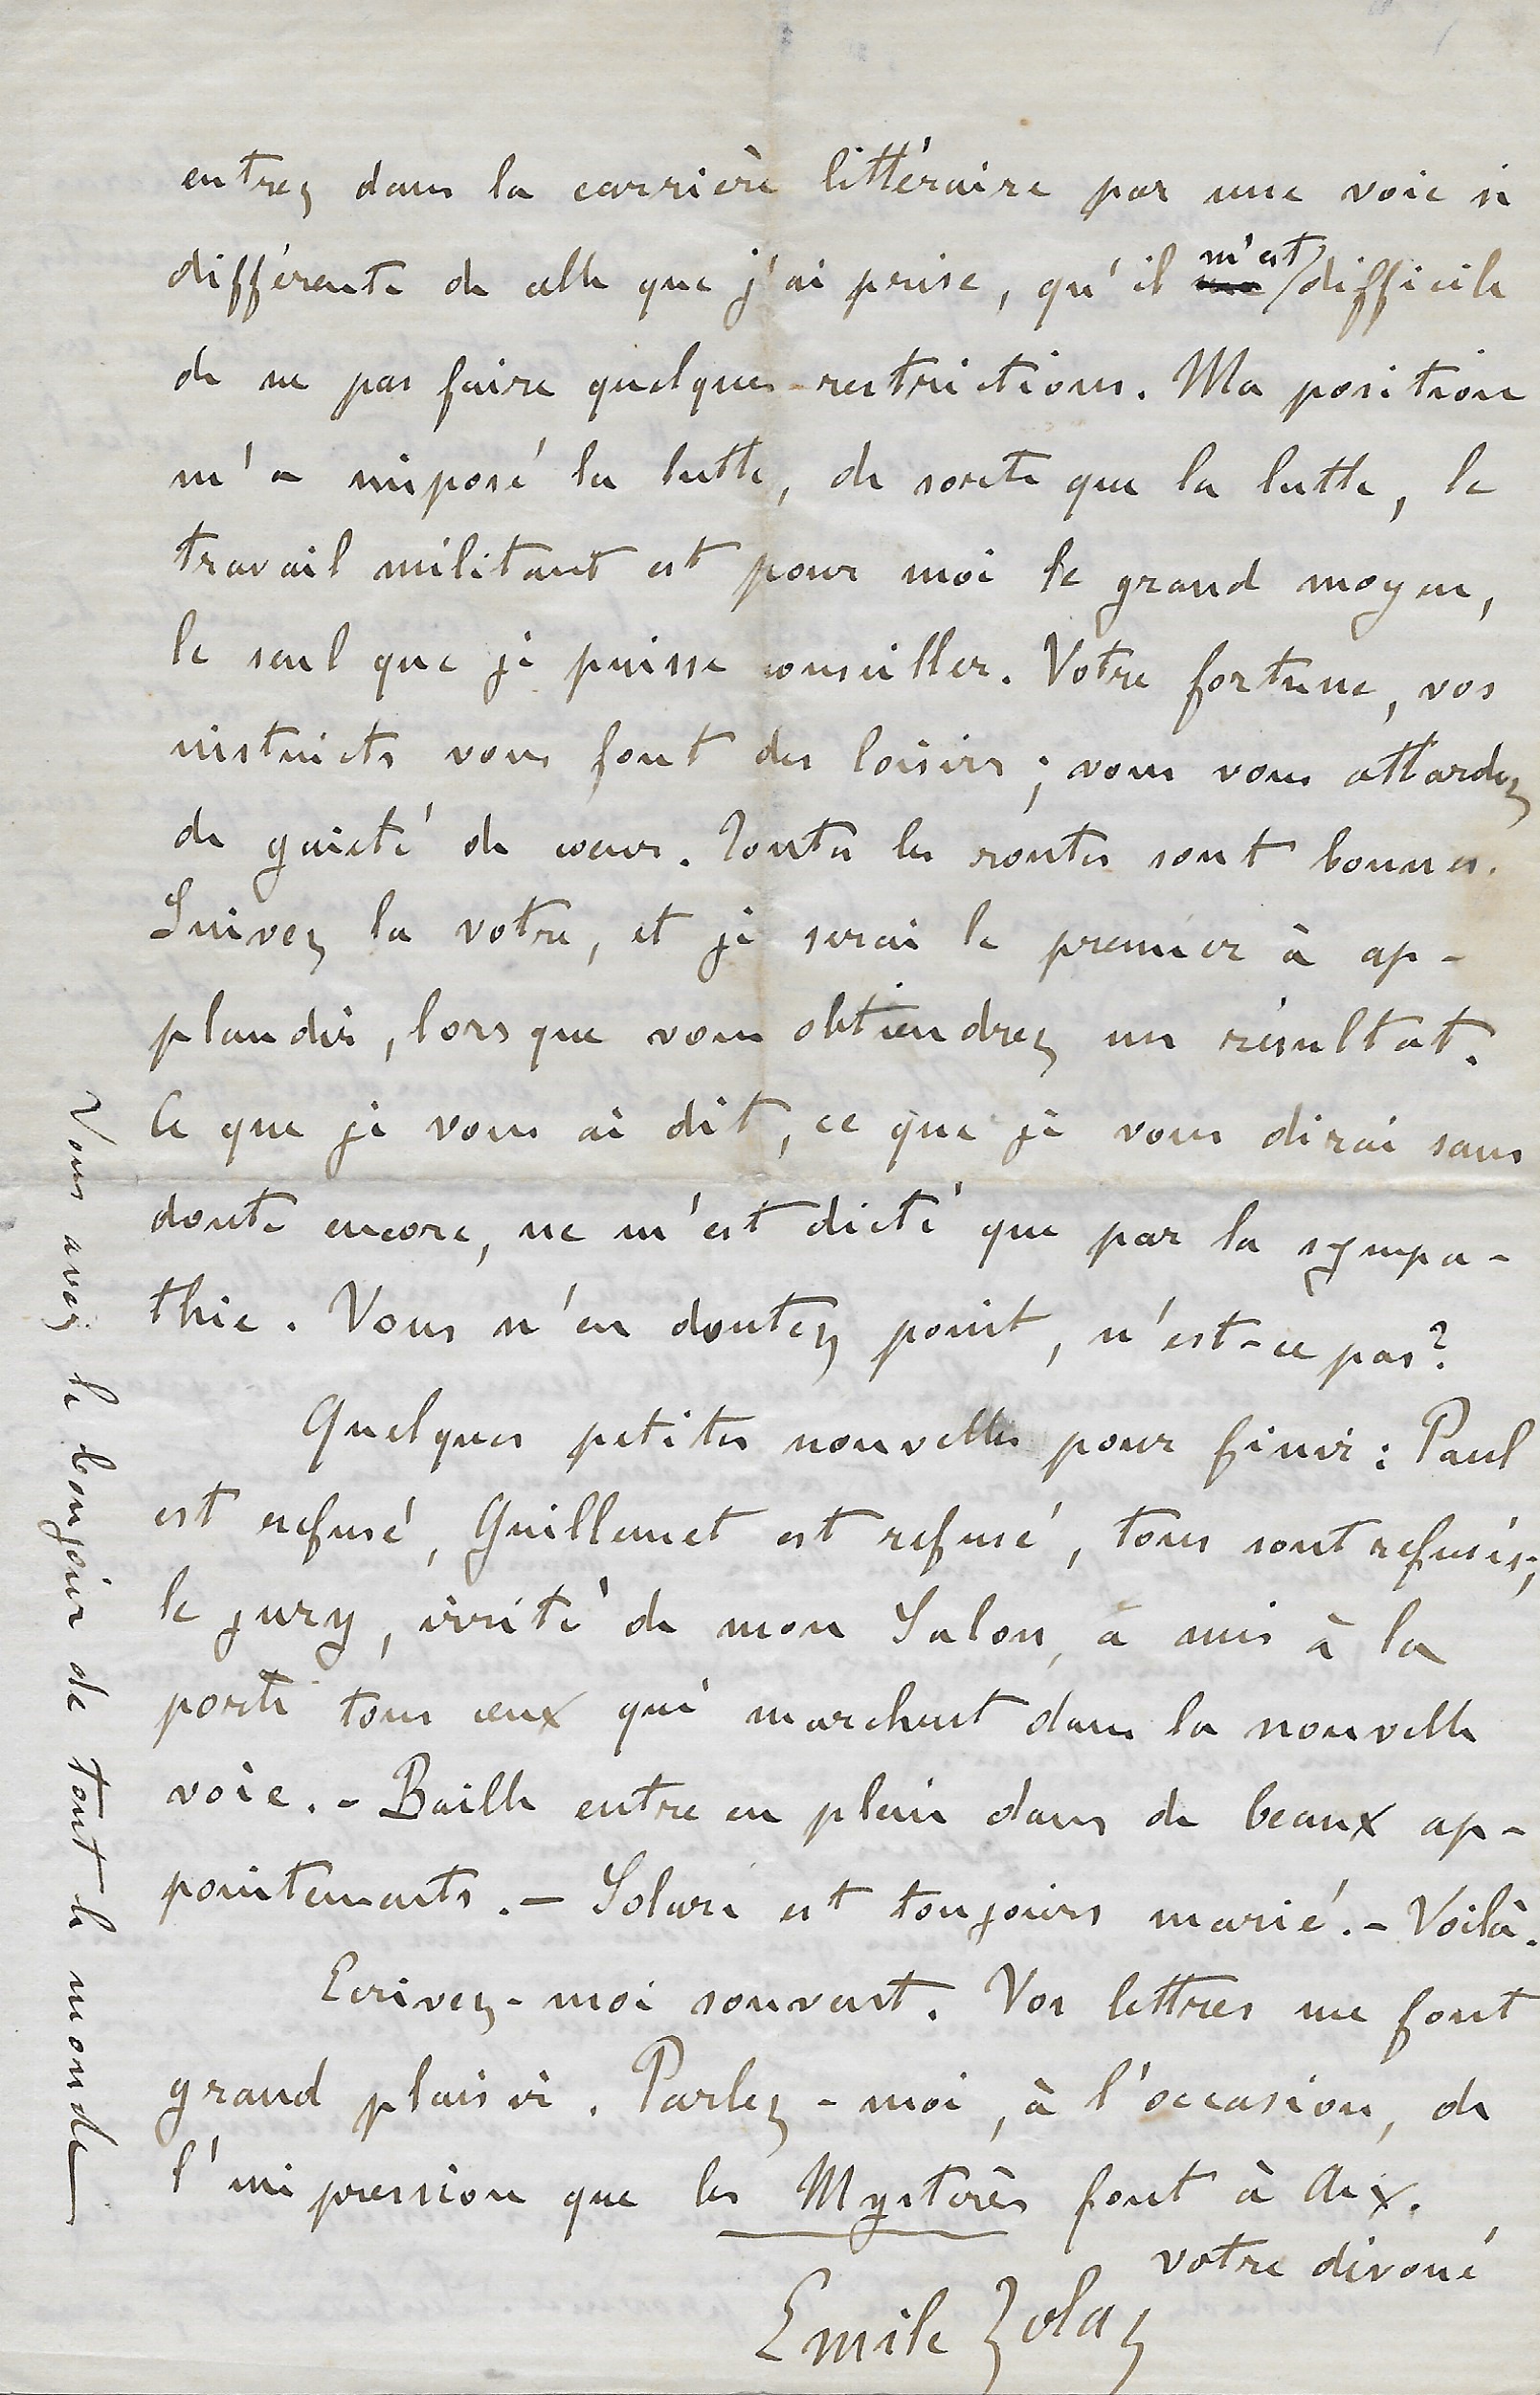 entrez dans la carrière littéraire par une voie si
différente de celle que j'ai prise, qu'il m'est difficile
de ne pas faire quelques restrictions. Ma position
m'a imposé la lutte, de sorte que la lutte, le
travail militant est pour moi le grand moyen,
le seul que je puisse conseiller. Votre fortune, vos
instincts vous font des loisirs ; vous vous attardez
de gaieté de cœur. Toutes les routes sont bonnes.
Suivez la votre, et je serai le premier à ap-
plaudir, lorsque vous obtiendrez un résultat.
Ce que je vous ai dit, ce que je vous dirai sans
doute encore, ne m'est dicté que par la sympa-
thie. Vous n'en doutez point, n'est-ce pas?
Quelques petites nouvelles pour finir : Paul
est refusé, Guillemet est refusé, tous sont refusés;
le jury, irrité de mon Salon, a mis à la
porte tous ceux qui marchent dans la nouvelle
voie. - Baille entre en plein dans de beaux ap-
pointements. - Solari est toujours marié. - Voilà.
Ecrivez-moi souvent. Vos lettres me font
grand plaisir. Parlez-moi, à l'occasion, de
l'impression que les Mystères font à Aix.
votre dévoué
Emile Zola
Vous avez le bonjour de tout le monde